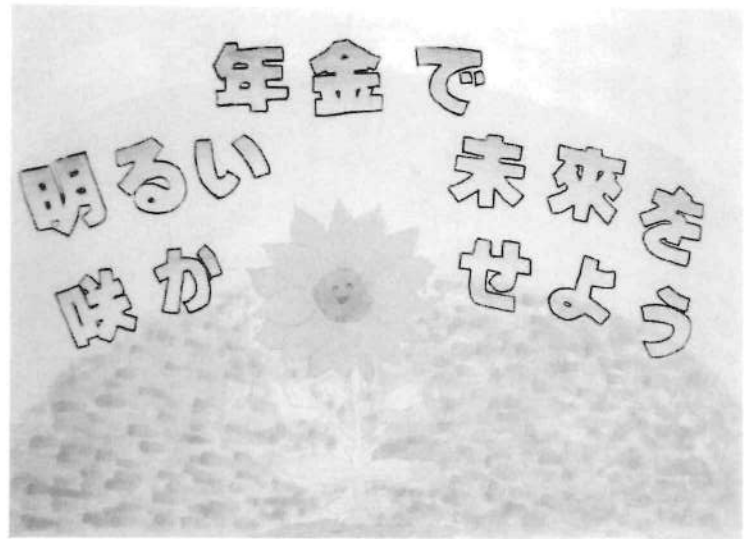 年金で
明るい未来を
咲かせよう